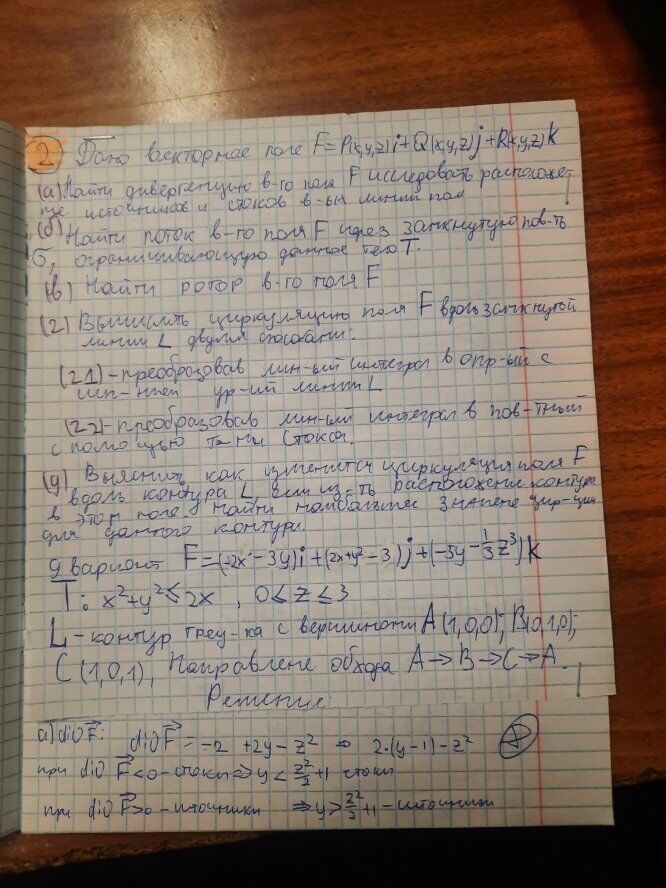 2 Дано векторное поле F=P(x,y,z)i+Q(x,y,z)j+R(x,y,z)k
(а) Найти дивергенцию в-го поля F исследовать расположе-
ние источников и стоков в-ых линий поля
(б) Найти поток в-го поля F через замкнутую пов-ть
б, ограничивающую данное тело T.
(в) Найти ротор в-го поля F
(г) Вычислить циркуляцию поля F вдоль замкнутой
линии L двумя способами:
(г1)-преобразовав лин-ый интеграл в опр-ый с
ур-ий линии L
(г2)-преобразовав лин-ый интеграл в пов-тный
с помощью т-мы Стокса.
(д) Выяснить как изменится циркуляция поля F
вдоль контура L, если из-ть расположение контура
в этом поле. Найти наибольшее значение цир-ции
для данного контура.
9 вариант F=(-2x-3y)i+(2x+y²-3)j+(-5y-1/3z³)k
T: x²+y²≤2x, 0≤z≤3
L-контур треу-ка с вершинами A(1,0,0); B(0,1,0);
C(1,0,1), Направлене обхода A→B→C→A.
Решение:
а) div F: div F=-2+2y-z² ⇒ 2·(y-1)-z² +
при div F<0-стоки ⇒ y<z²/2+1 стоки
при div F>0-источники ⇒ y>z²/2+1-источники